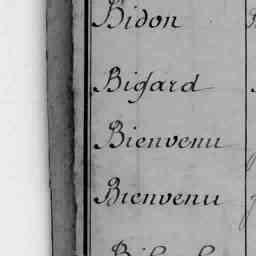 Bidon
Bigard
Bienvenu
Bienvenu